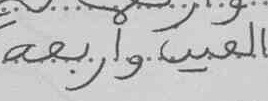 الفين واربعة